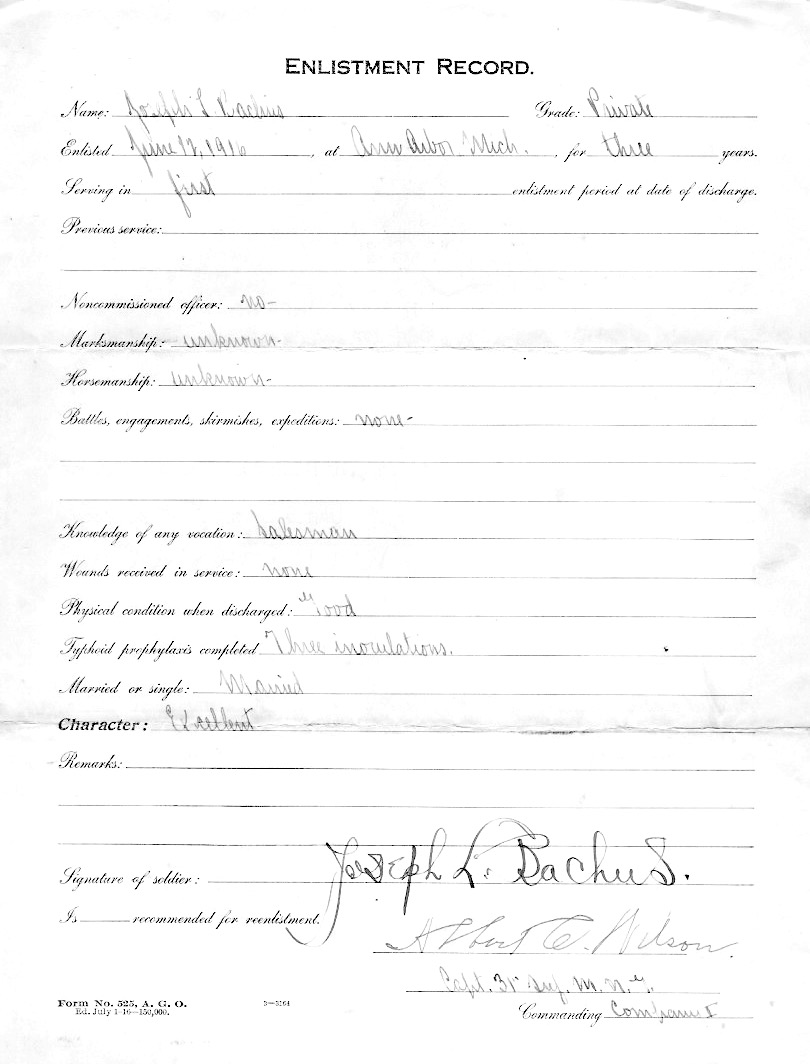 ENLISTMENT RECORD.
Name: Joseph L Bachus Grade: Private
Enlisted June 12, 1916, at Ann Arbor Mich., for three years.
Serving in first enlistment period at date of discharge.
Previous service:
Noncommissioned officer: no-
Marksmanship: unknown-
Horsemanship: unknown-
Battles, engagements, skirmishes, expeditions: none-
Knowledge of any vocation: Salesman
Wounds received in service: none
Physical condition when discharged: Good
Typhoid prophylaxis completed Three inoculations.
Married or single: Married
Character: Excellent
Remarks:
Signature of soldier: Joseph L. Bachus.
Is recommended for reenlistment.
Albert C. Wilson.
Capt. 31st Inf. M. N. G.
Form No. 525, A. G. O. 3—3164
Ed. July 1-16—150,000.
Commanding Company I